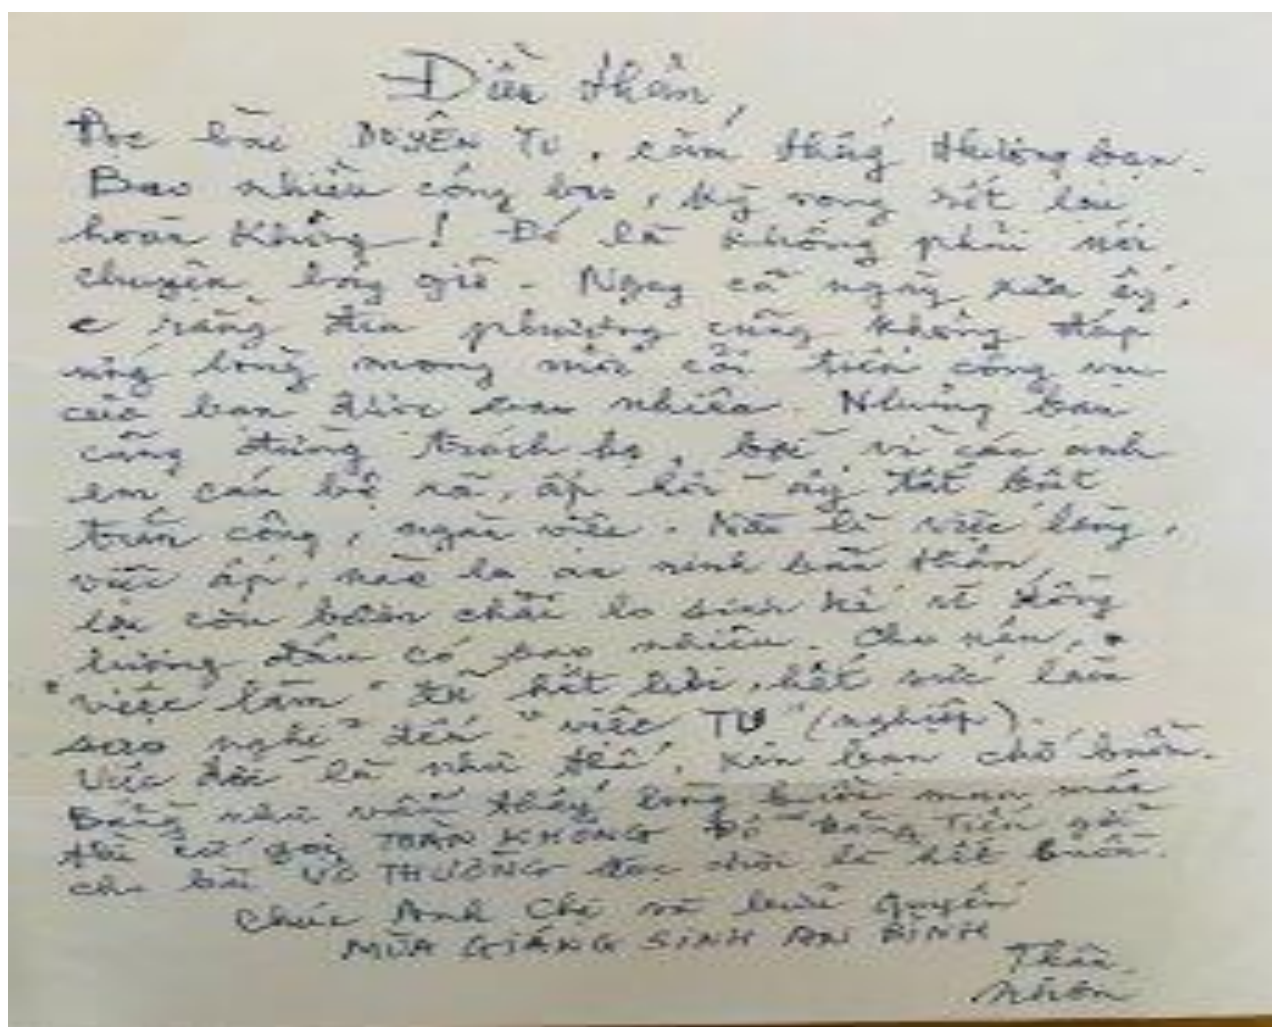 Diền thân,
Đọc bài DUYÊN TU, cảm thấy thương bạn.
Bao nhiêu công lao, kỳ vọng rốt lại
hoàn không! Đó là không phải nói
chuyện bây giờ. Ngay cả ngày xưa ấy,
rằng địa phương cũng không đáp
ứng lòng mong mỏi cải tiến công vụ
của bạn được bao nhiêu. Nhưng bạn
cũng đừng trách họ, bởi vì các anh
em cán bộ xã, ấp hồi ấy tất bật
trăm công, ngàn việc. Nào là việc làng,
việc ấp, nào là an ninh bản thân,
lại còn bôn chải lo sinh kế vì đồng
lương đâu có bao nhiêu. Cho nên,
"việc làm" đã hết hơi, hết sức làm
sao nghĩ đến "việc TU" (nghiệp).
Việc đời là như thế, xin bạn chớ buồn.
Bằng như vẫn thấy lòng buồn man mác
thì cứ gọi TOÀN KHÔNG Đỗ Đăng Tiến gởi
cho bài VÔ THƯỜNG đọc chơi là hết buồn.
Chúc Anh Chị và bửu quyến
MÙA GIÁNG SINH AN BÌNH
Thân,
Nhơn